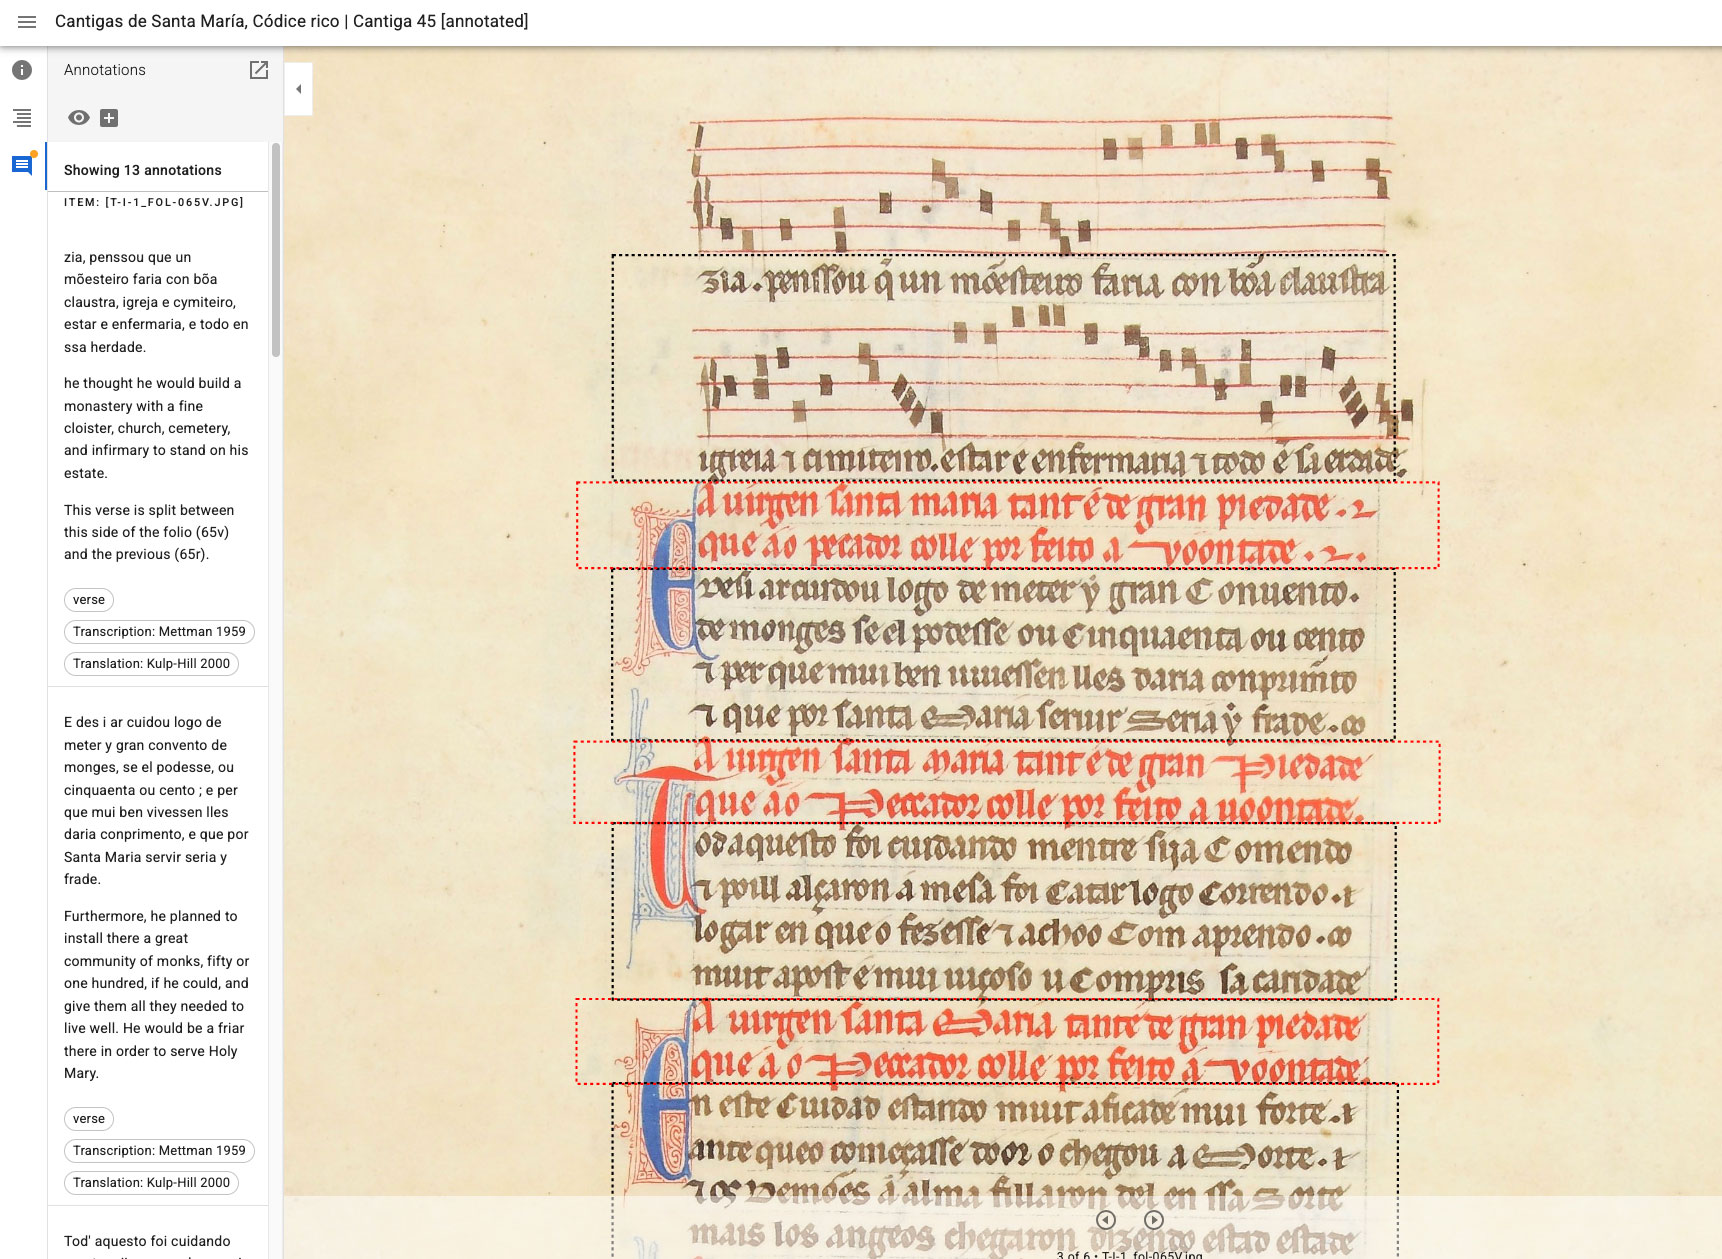 Cantigas de Santa María, Códice rico | Cantiga 45 [annotated]
Annotations
Showing 13 annotations
ITEM: [T-I-1_FOL-065V.JPG]
zia, penssou que un
mõesteiro faria con bõa
claustra, igreja e cymiteiro,
estar e enfermaria, e todo en
ssa herdade.
he thought he would build a
monastery with a fine
cloister, church, cemetery,
and infirmary to stand on his
estate.
This verse is split between
this side of the folio (65v)
and the previous (65r).
verse
Transcription: Mettman 1959
Translation: Kulp-Hill 2000
E des i ar cuidou logo de
meter y gran convento de
monges, se el podesse, ou
cinquaenta ou cento ; e per
que mui ben vivessen lles
daria conprimento, e que por
Santa Maria servir seria y
frade.
Furthermore, he planned to
install there a great
community of monks, fifty or
one hundred, if he could, and
give them all they needed to
live well. He would be a friar
there in order to serve Holy
Mary.
verse
Transcription: Mettman 1959
Translation: Kulp-Hill 2000
Tod' aquesto foi cuidando
zia. penssou q̃ un mõesteiro faria con bõa claustra
igreia ⁊ cimiteiro. estar e enfermaria ⁊ todo ẽ sa erdade.
A uirgen santa maria tant é de gran piedade.
que ao pecador colle por feito a uoontade.
E desi ar cuidou logo de meter ẏ gran Conuento.
de monges se el podesse ou Cinquaenta ou cento
⁊ per que mui ben uiuessen lles daria conprimẽto
⁊ que por santa Maria seruir Seria ẏ frade.
A uirgen santa maria tant é de gran Piedade
que ao Peccador colle por feito a uoontade.
Tod aquesto foi cuidando mentre sija Comendo
⁊ poill alçaron a mesa foi Catar logo Correndo. ⁊
logar en que o fezesse ⁊ achoo Com aprendo.
muit apost e mui uiçoso u Compris sa caridade
A uirgen santa Maria tant é de gran piedade
que a o Peccador colle por feito á uoontade.
En este Cuidad estando muit aficade mui forte. ⁊
ante que o começasse door o chegou a Morte. ⁊
⁊ os Demões a alma fillaron del en ssa Sorte
mais los angeos chegaron dizendo estad estade
3 of 6 • T-I-1_fol-065V.jpg